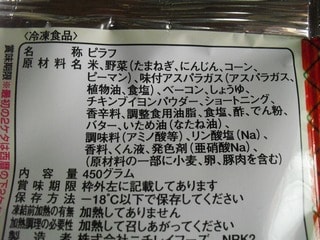 〈冷凍食品〉
名称 ピラフ
原材料名 米、野菜(たまねぎ、にんじん、コーン、
ピーマン)、味付アスパラガス(アスパラガス、
植物油、食塩)、ベーコン、しょうゆ、
チキンブイヨンパウダー、ショートニング、
香辛料、調整食用油脂、食塩、酢、でん粉、
バター、いため油(なたね油)、
調味料(アミノ酸等)、リン酸塩(Na)、
香料、くん液、発色剤(亜硝酸Na)、
(原材料の一部に小麦、卵、豚肉を含む)
内容量 450グラム
賞味期限 枠外左に記載してあります
保存方法 −18℃以下で保存してください
凍結前加熱の有無 加熱してありません
加熱調理の必要性 加熱して召しあがってください
製造者 株式会社ニチレイフーズ NRK2
賞味期限
※最初の2ケタは西暦の下2ケタ